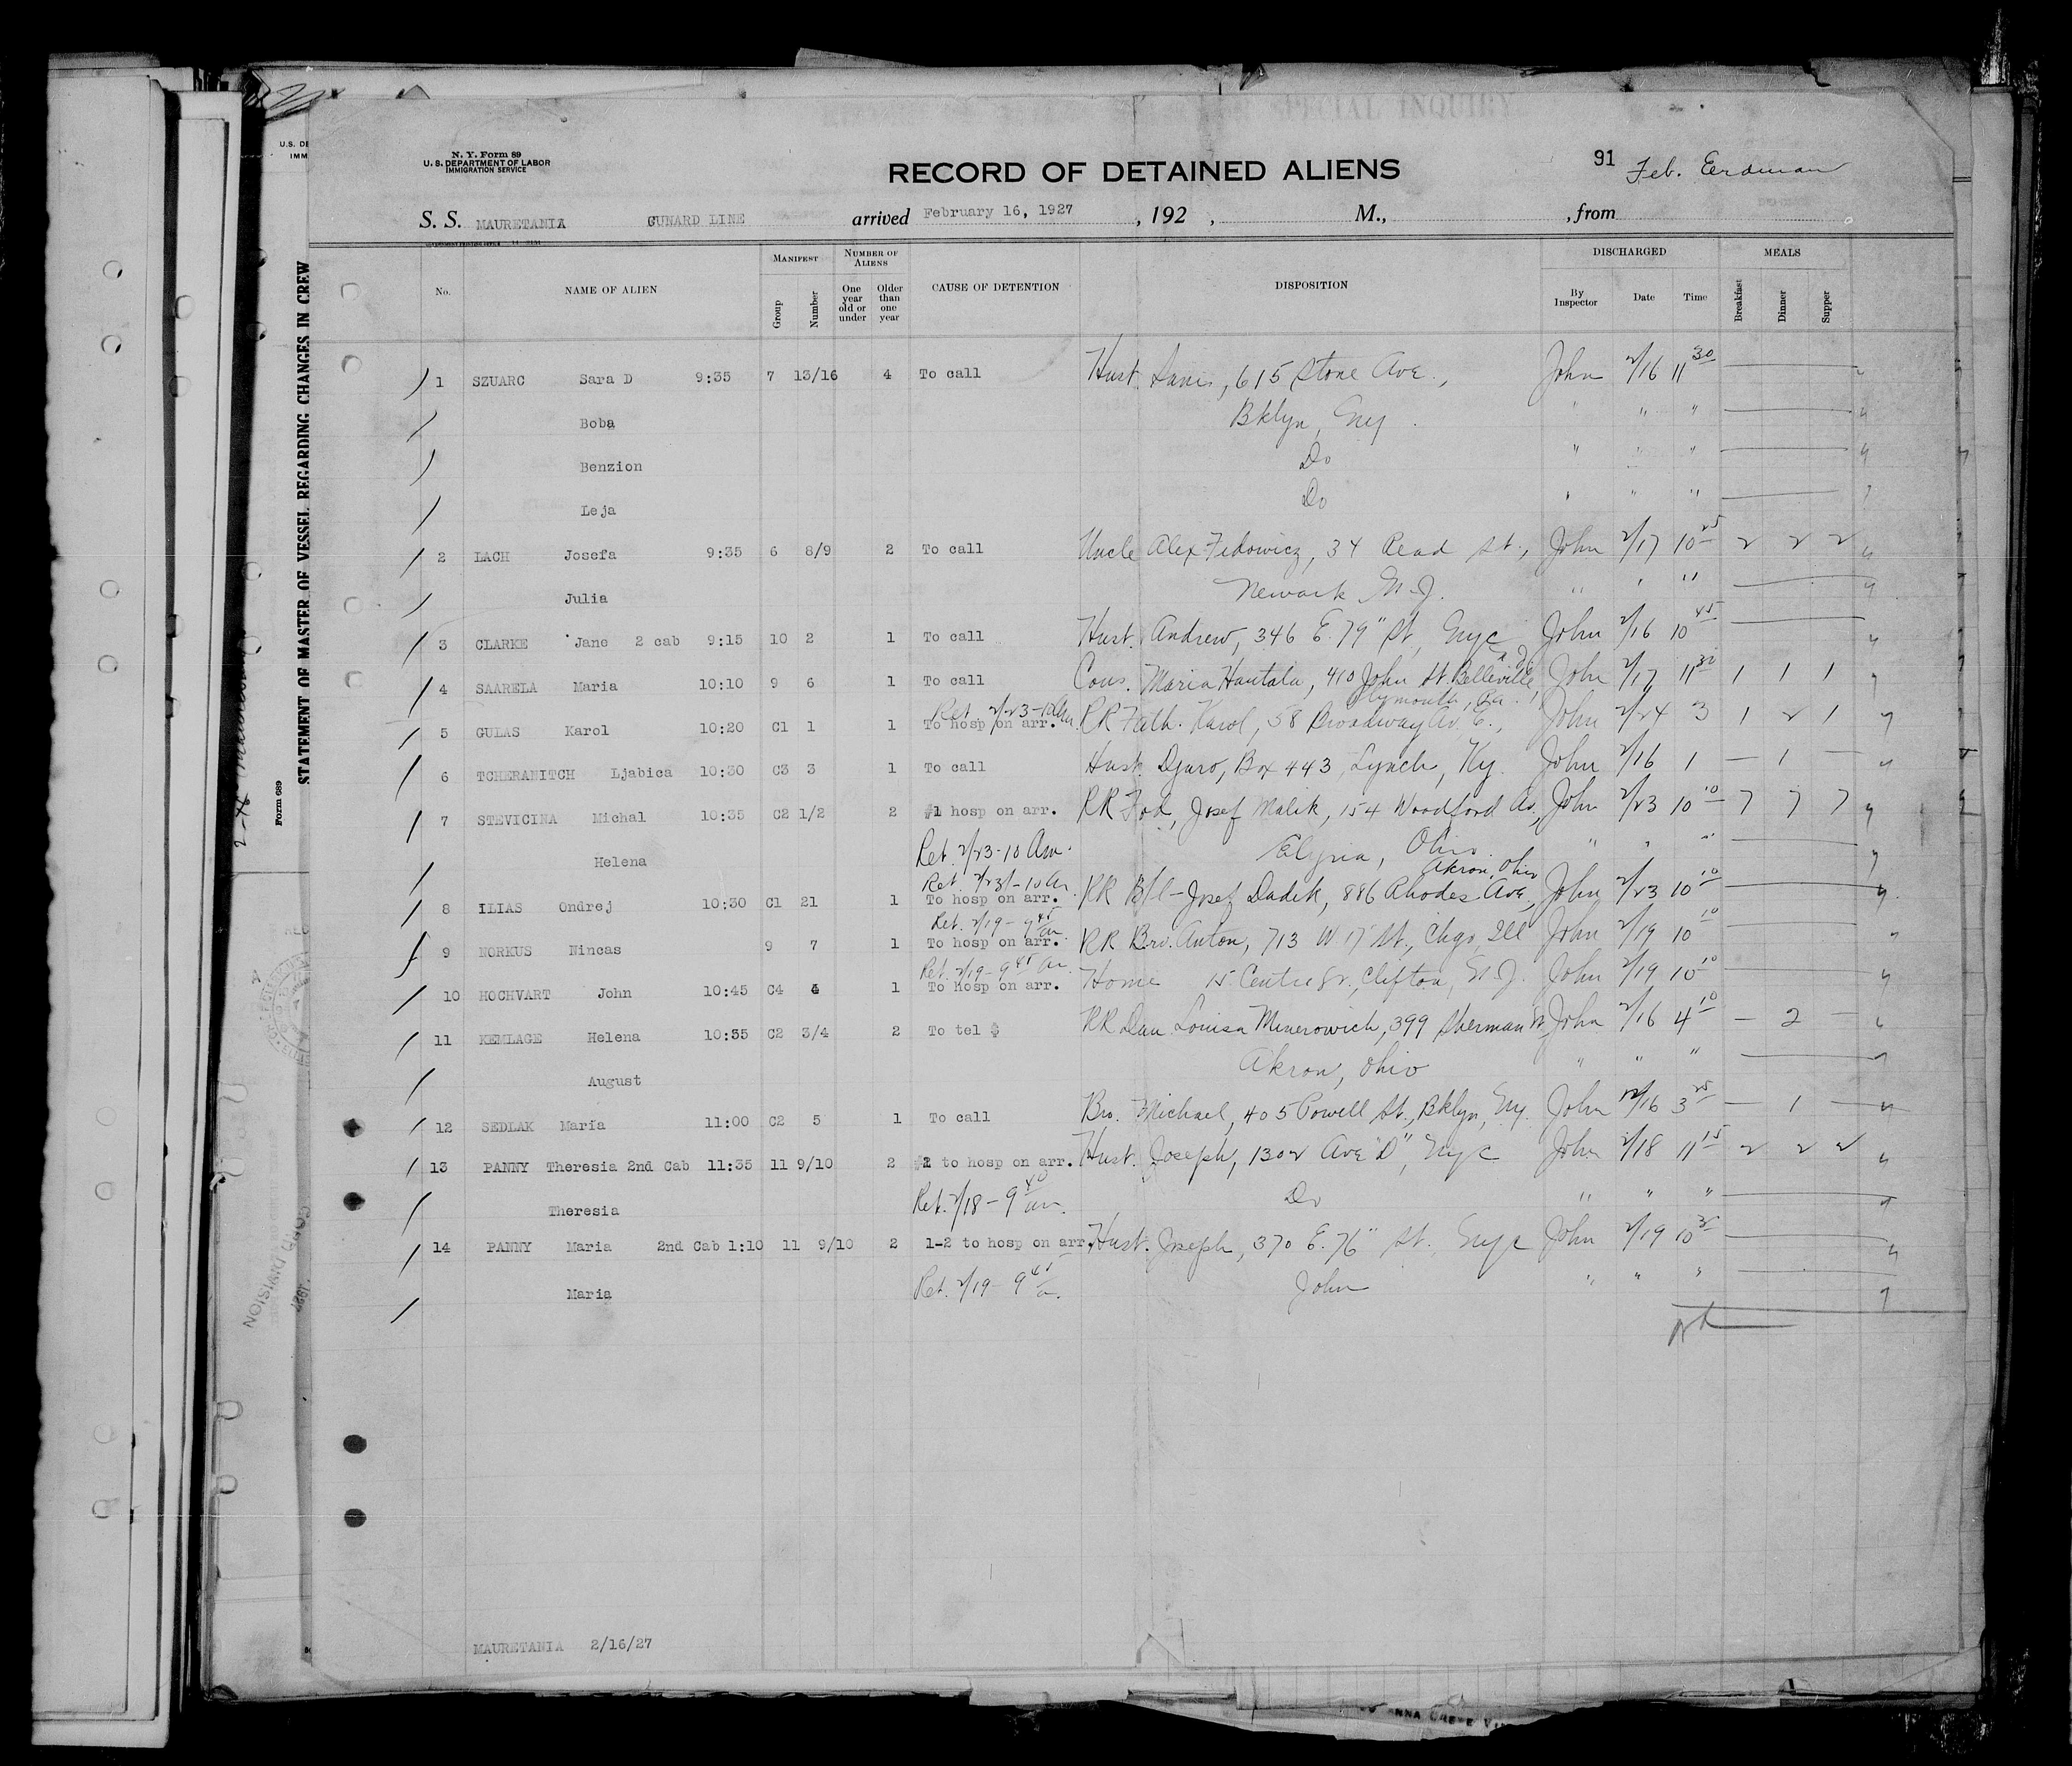 N. Y. Form 89
U. S. DEPARTMENT OF LABOR
IMMIGRATION SERVICE
RECORD OF DETAINED ALIENS
91 Feb. Erdman
S. S. MAURETANIA CUNARD LINE arrived February 16, 1927, 192 , M., , from
No. NAME OF ALIEN MANIFEST Group Number NUMBER OF ALIENS One year old or under Older than one year CAUSE OF DETENTION DISPOSITION DISCHARGED By Inspector Date Time MEALS Breakfast Dinner Supper
1 SZUARC Sara D 9:35 7 13/16 4 To call Hust. 615 Stone Ave., John 2/16 11 30
Boba Bklyn, Ny. " " "
Benzion Do " " "
Leja Do " " "
2 LACH Josefa 9:35 6 8/9 2 To call Uncle Alex Fedowicz, 34 Read St., John 2/17 10 25 2 2 2
Julia Newark N.J. " " "
3 CLARKE Jane 2 cab 9:15 10 2 1 To call Hust. Andrew, 346 E. 79" St, Nyc John 2/16 10 45
4 SAARELA Maria 10:10 9 6 1 To call Cous. Maria Hautala, 410 John St. Belleville, N.J. John 2/17 11 30 1 1 1
Ret 2/23-10 Am. Plymouth, Pa.
5 GULAS Karol 10:20 C1 1 1 To hosp on arr. RR Fath. Karol, 58 Broadway Av. E., John 2/24 3 1 2 1
6 TCHERANITCH Ljabica 10:30 C3 3 1 To call Husb. Djuro, Box 443, Lynch, Ky. John 2/16 1 — 1 —
7 STEVICINA Michal 10:35 C2 1/2 2 #1 hosp on arr. RR Fod, Josef Malik, 154 Woodford Av, John 2/23 10 10 7 7 7
Helena Ret. 2/23-10 Am. Elyria, Ohio " " "
Ret. 2/23-10 Am. Akron, Ohio
8 ILIAS Ondrej 10:30 C1 21 1 To hosp on arr. RR B/l - Josef Dadik, 886 Rhodes Ave, John 2/23 10 10
Ret. 2/19-9 45 am.
9 NORKUS Nincas 9 7 1 To hosp on arr. RR Bro. Anton, 713 W 17" St., Chgo, Ill John 2/19 10 10
Ret. 2/19-9 45 am.
10 HOCHVART John 10:45 C4 4 1 To hosp on arr. Home 15 Centre St., Clifton, N.J. John 2/19 10 10
11 KEMLAGE Helena 10:55 C2 3/4 2 To tel $ RR Dau. Louisa Minerowich, 399 Sherman St, John 2/16 4 10 — 2 —
August Akron, Ohio " " "
12 SEDLAK Maria 11:00 C2 5 1 To call Bro. Michael, 405 Powell St., Bklyn, Ny. John 2/16 3 25 — 1 —
13 PANNY Theresia 2nd Cab 11:35 11 9/10 2 #2 to hosp on arr. Hust. Joseph, 1302 Ave "D", Nyc John 2/18 11 15 2 2 2
Theresia Ret. 2/18-9 40 am. Do " " "
14 PANNY Maria 2nd Cab 1:10 11 9/10 2 1-2 to hosp on arr. Hust. Joseph, 370 E. 76" St. Nyc John 2/19 10 35
Maria Ret. 2/19-9 45 a. John " " "
MAURETANIA 2/16/27
STATEMENT OF MASTER OF VESSEL REGARDING CHANGES IN CREW
Form 689